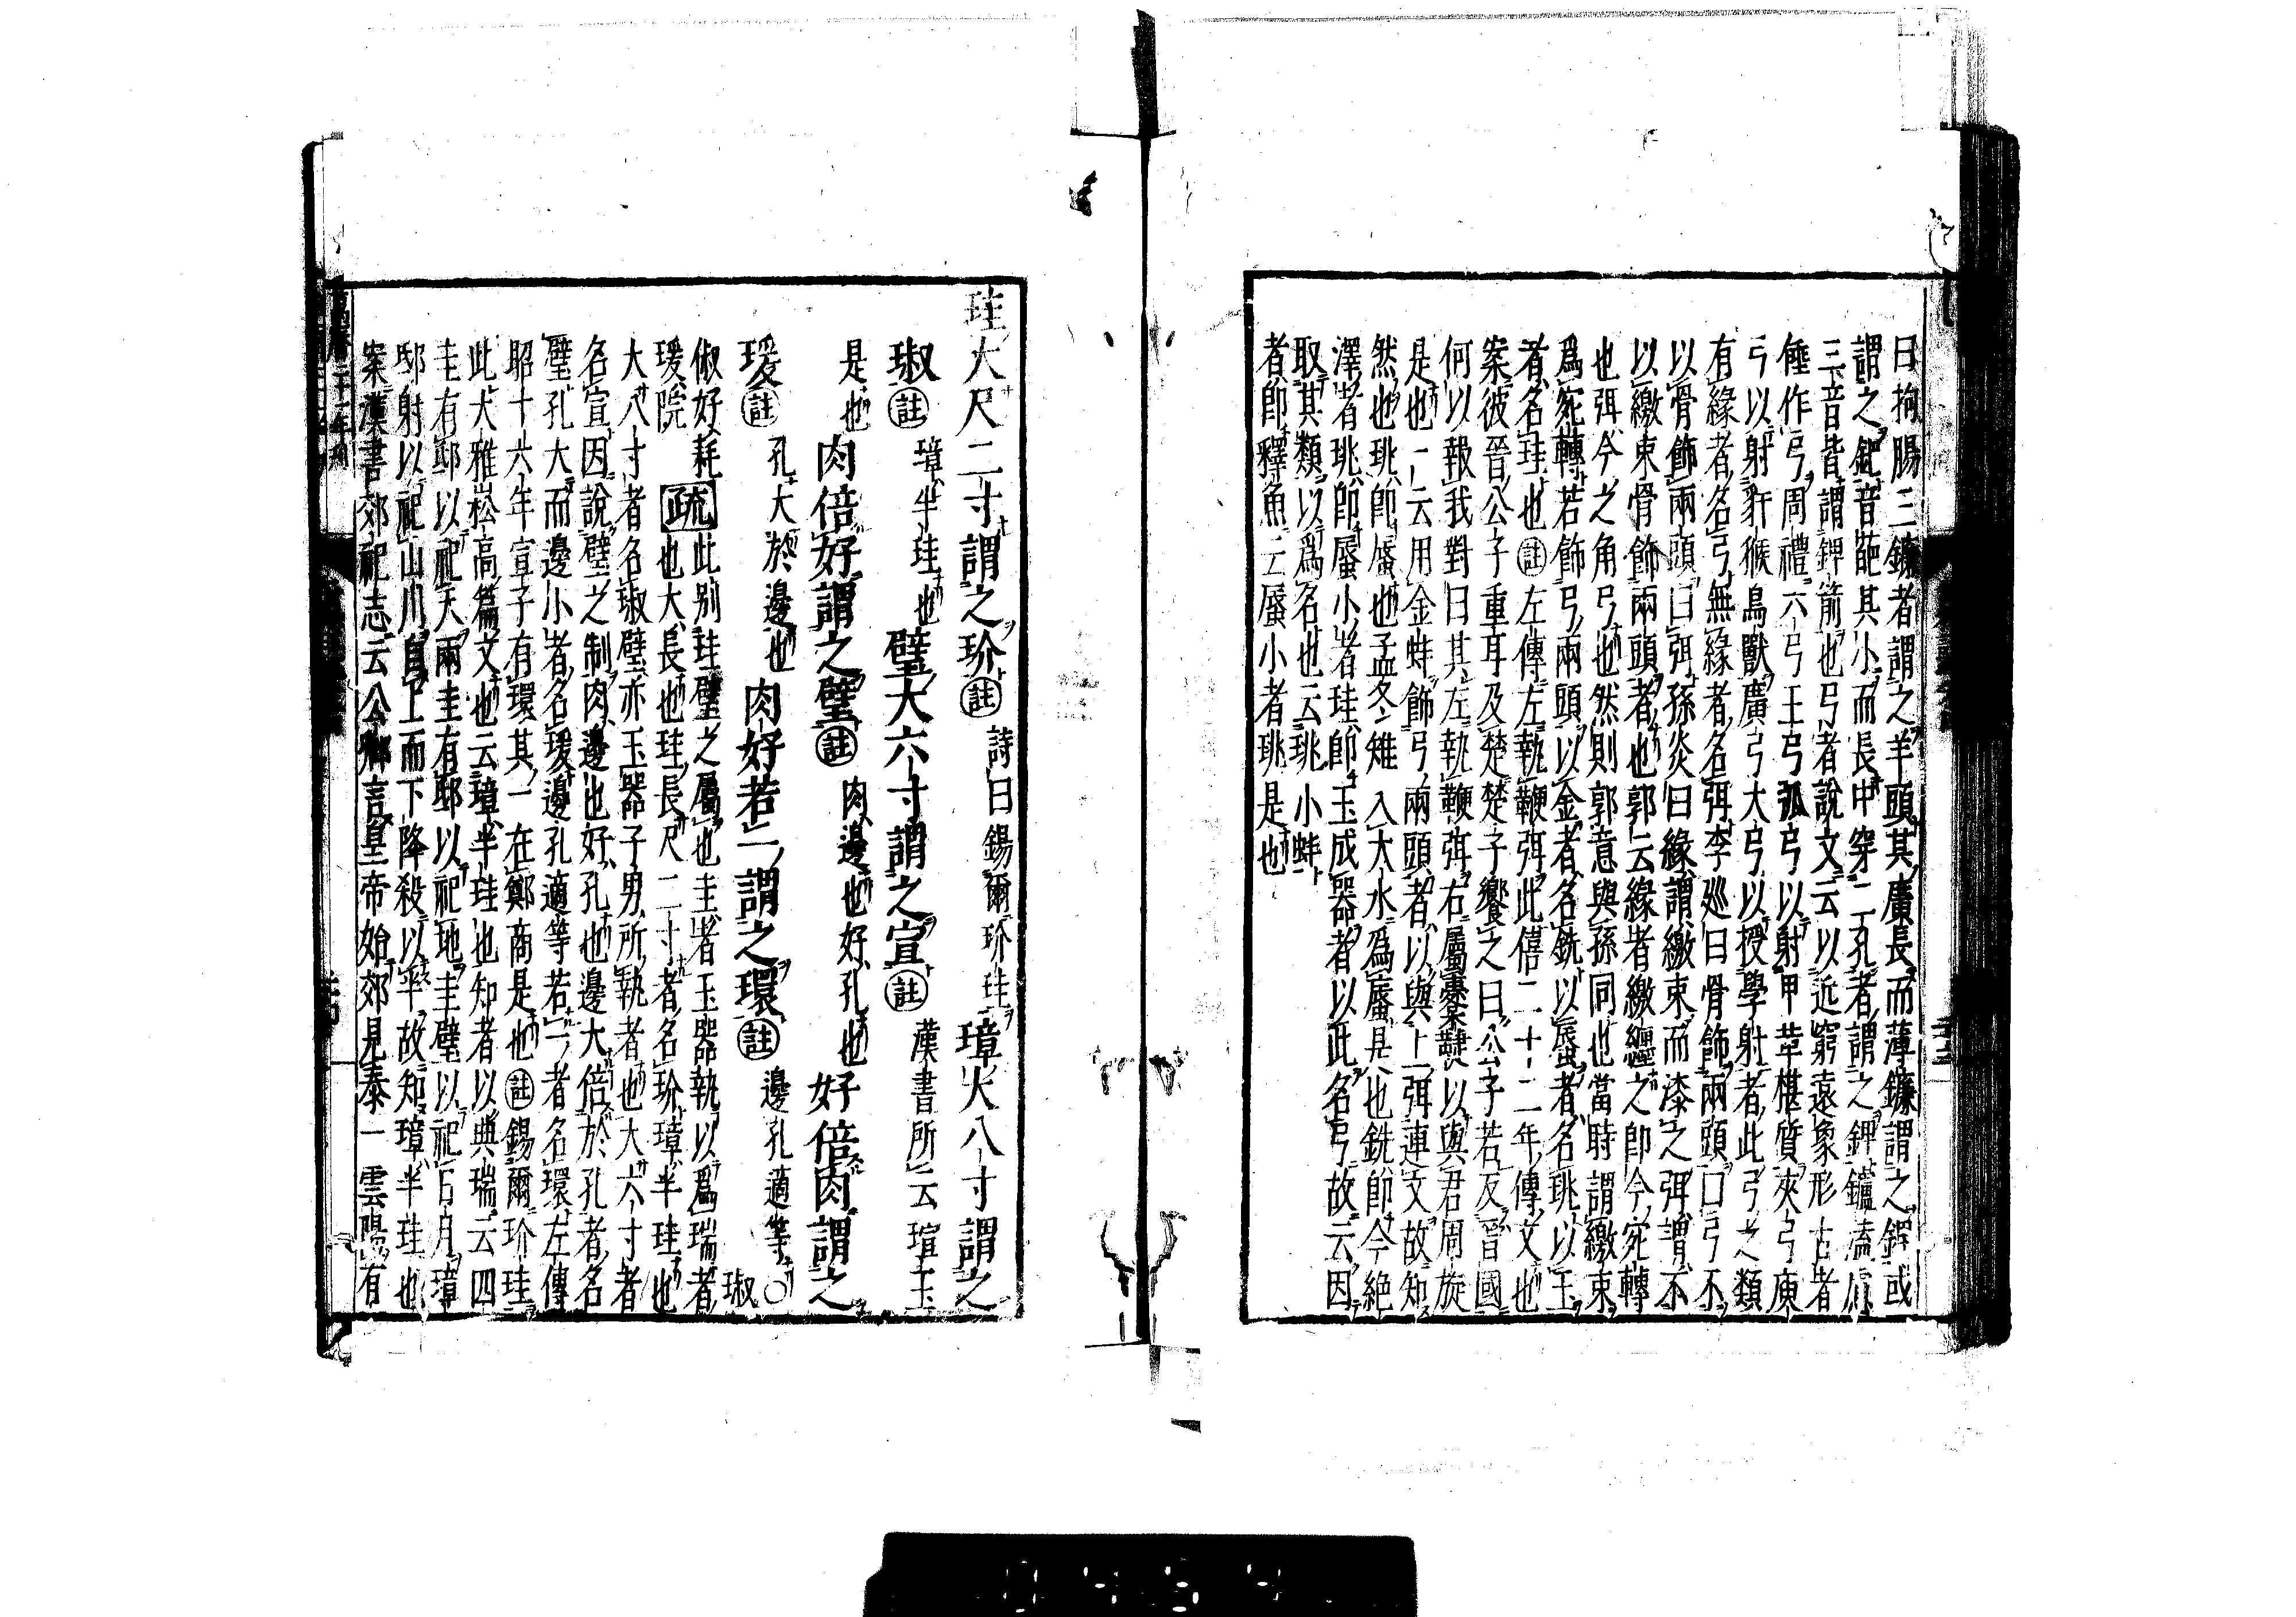 曰拘腸三鐮者謂之羊頭其廣長而薄鐮謂之錍或
謂之鈀音葩其小而長中穿二孔者謂之錍鑪
三音皆謂錍箭也弓者說文云以近窮遠象形古者
倕作弓周禮六弓王弓弧弓以射甲革椹質夾弓庾
弓以射豻侯鳥獸廣弓大弓以授學射者此弓之類
有緣者名弓無緣者名弭李巡曰骨飾兩頭曰弓不
以骨飾兩頭曰弭孫炎曰緣謂繳束而漆之弭謂不
以繳束骨飾兩頭者也郭云緣者繳纏之卽今宛轉
也弭今之角弓也然則郭意與孫同也當時謂繳束
爲宛轉若飾弓兩頭以金者名銑以蜃者名珧以玉
者名珪也註左傳左執鞭弭此僖二十二年傳文也
案彼晉公子重耳及楚楚子饗之曰公子若反晉國
何以報我對曰其左執鞭弭右屬櫜鞬以與君周旋
是也一云用金蚌飾弓兩頭者以與上弭連文故知
然也珧卽蜃也孟冬雉入大水爲蜃是也銑卽今絕
澤者珧卽蜃小者珪卽玉成器者以此名弓故云因
取其類以爲名也云珧小蚌
者卽釋魚云蜃小者珧是也
珪大尺二寸謂之玠註詩曰錫爾玠珪璋大八寸謂之
琡註璋半珪也璧大六寸謂之宣註漢書所云瑄玉
是也肉倍好謂之璧註肉邊也好孔也好倍肉謂之
瑗註孔大於邊也肉好若一謂之環註邊孔適等○琡
俶好耗疏此別珪璧之屬也圭者玉器執以爲瑞者
瑗院也大長也珪長尺二寸者名玠璋半珪也
大八寸者名琡璧亦玉器子男所執者也大六寸者
名宣因說璧之制肉邊也好孔也邊大倍於孔者名
璧孔大而邊小者名瑗邊孔適等若一者名環左傳
昭十六年宣子有環其一在鄭商是也註錫爾玠珪
此大雅崧高篇文也云璋半珪也知者以典瑞云四
圭有邸以祀天兩圭有邸以祀地圭璧以祀日月璋
邸射以祀山川自上而下降殺以半故知璋半珪也
案漢書郊祀志云公卿言皇帝始郊見泰一雲陽有